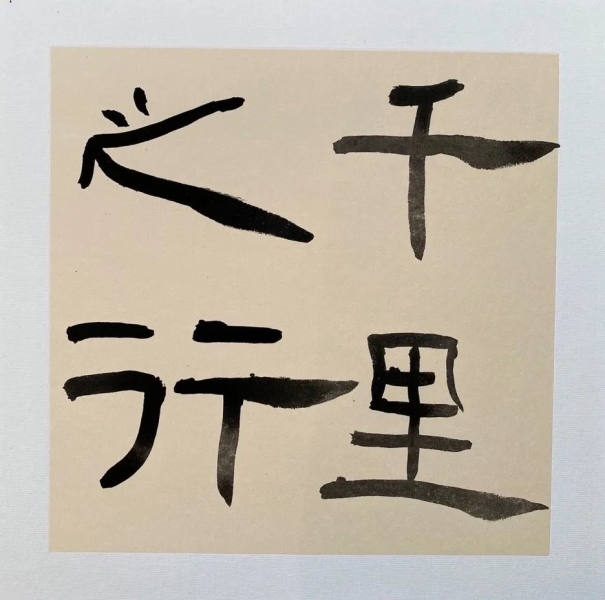 千里
之行